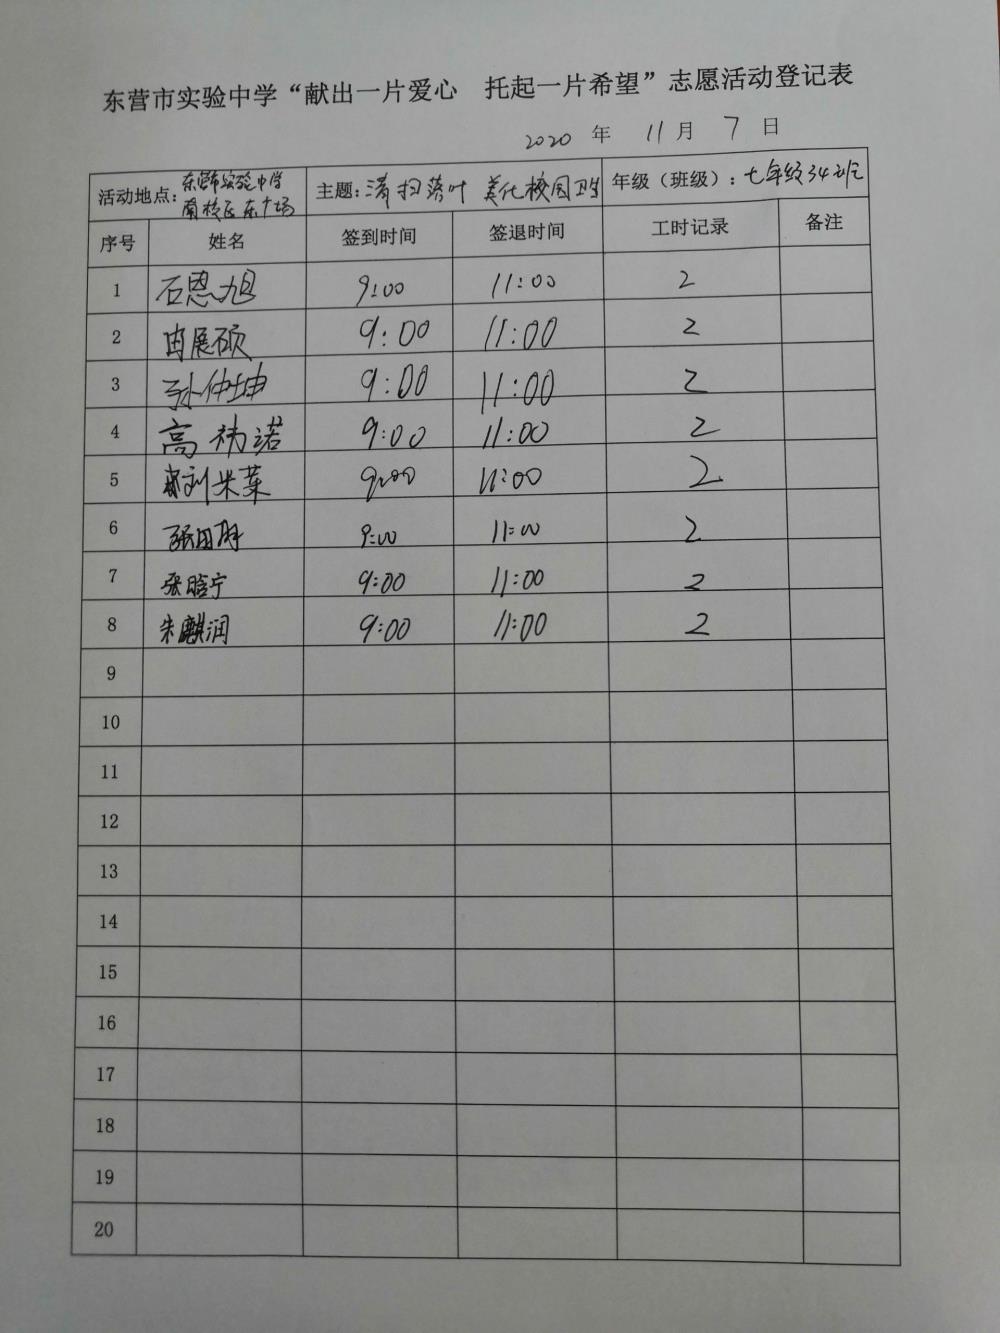 东营市实验中学“献出一片爱心 托起一片希望”志愿活动登记表
2020 年 11 月 7 日
活动地点：东营市实验中学南校区东广场 主题：清扫落叶 美化校园卫生 年级（班级）：七年级34班
序号 姓名 签到时间 签退时间 工时记录 备注
1 石恩旭 9:00 11:00 2
2 冉展硕 9:00 11:00 2
3 孙仲坤 9:00 11:00 2
4 高祎诺 9:00 11:00 2
5 刘朱莱 9:00 11:00 2
6 张田玥 9:00 11:00 2
7 张晗宁 9:00 11:00 2
8 朱麒润 9:00 11:00 2
9
10
11
12
13
14
15
16
17
18
19
20